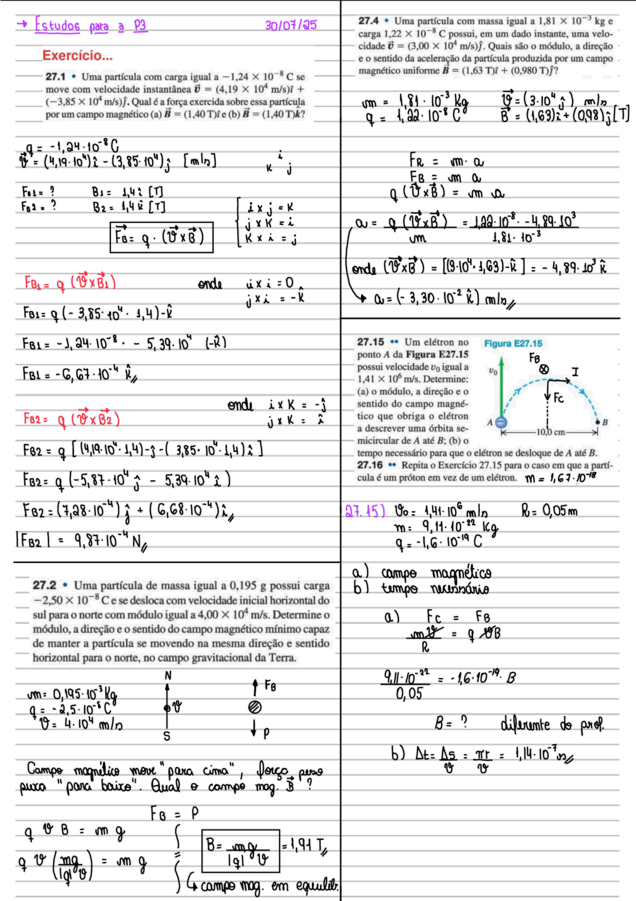 → Estudos para a P3 30/07/25
Exercício...
27.1 • Uma partícula com carga igual a −1,24 × 10⁻⁸ C se
move com velocidade instantânea v⃗ = (4,19 × 10⁴ m/s)î +
(−3,85 × 10⁴ m/s)ĵ. Qual é a força exercida sobre essa partícula
por um campo magnético (a) B⃗ = (1,40 T)î e (b) B⃗ = (1,40 T)k̂?
q = -1,24·10⁻⁸ C
v⃗ = (4,19·10⁴)î - (3,85·10⁴)ĵ [m/s]
i
k j
FB1 = ? B1 = 1,4 î [T]
FB2 = ? B2 = 1,4 k̂ [T]
F⃗B = q · (v⃗ x B⃗)
i x j = k
j x k = i
k x i = j
FB1 = q (v⃗ x B⃗1) onde i x i = 0
j x i = -k̂
FB1 = q (- 3,85·10⁴ · 1,4)-k̂
FB1 = -1,24·10⁻⁸ · - 5,39·10⁴ (-k̂)
FB1 = -6,67·10⁻⁴ k̂//
FB2 = q (v⃗ x B⃗2) onde i x k = -ĵ
j x k = î
FB2 = q [(4,19·10⁴·1,4)-ĵ-(3,85·10⁴·1,4)î]
FB2 = q (-5,87·10⁴ ĵ - 5,39·10⁴ î)
FB2 = (7,28·10⁻⁴)ĵ + (6,68·10⁻⁴)î//
|FB2| = 9,87·10⁻⁴ N//
27.2 • Uma partícula de massa igual a 0,195 g possui carga
−2,50 × 10⁻⁸ C e se desloca com velocidade inicial horizontal do
sul para o norte com módulo igual a 4,00 × 10⁴ m/s. Determine o
módulo, a direção e o sentido do campo magnético mínimo capaz
de manter a partícula se movendo na mesma direção e sentido
horizontal para o norte, no campo gravitacional da Terra.
m = 0,195·10⁻³ Kg
q = -2,5·10⁻⁸ C
v = 4·10⁴ m/s
N
v
S
FB
P
Campo magnético move "para cima", força peso
puxa "para baixo". Qual o campo mag. B⃗ ?
FB = P
q v B = m g
q v (mg/|q|v) = m g
B = mg/|q|v = 1,91 T//
↳ campo mag. em equilíb.
27.4 • Uma partícula com massa igual a 1,81 × 10⁻³ kg e
carga 1,22 × 10⁻⁸ C possui, em um dado instante, uma velo-
cidade v⃗ = (3,00 × 10⁴ m/s)ĵ. Quais são o módulo, a direção
e o sentido da aceleração da partícula produzida por um campo
magnético uniforme B⃗ = (1,63 T)î + (0,980 T)ĵ?
m = 1,81·10⁻³ Kg v⃗ = (3·10⁴ ĵ) m/s
q = 1,22·10⁻⁸ C B⃗ = (1,63)î + (0,98)ĵ [T]
FR = m · a
FB = m a
q (v⃗ x B⃗) = m a
a = q (v⃗ x B⃗)/m = 1,22·10⁻⁸ · -4,89·10³/1,81·10⁻³
onde (v⃗ x B⃗) = [(3·10⁴·1,63)-k̂] = - 4,89·10³ k̂
→ a = (- 3,30·10⁻² k̂) m/s//
27.15 •• Um elétron no
ponto A da Figura E27.15
possui velocidade v₀ igual a
1,41 × 10⁶ m/s. Determine:
(a) o módulo, a direção e o
sentido do campo magné-
tico que obriga o elétron
a descrever uma órbita se-
micircular de A até B; (b) o
tempo necessário para que o elétron se desloque de A até B.
Figura E27.15
v₀
FB
I
Fc
A
B
10,0 cm
27.16 •• Repita o Exercício 27.15 para o caso em que a partí-
cula é um próton em vez de um elétron. m = 1,67·10⁻¹⁸
27.15) v₀ = 1,41·10⁶ m/s R = 0,05m
m = 9,11·10⁻²² Kg
q = -1,6·10⁻¹⁹ C
a) campo magnético
b) tempo necessário
a) Fc = FB
mv²/R = q vB
9,11·10⁻²²/0,05 = -1,6·10⁻¹⁹ · B
B = ? diferente do prof.
b) Δt = Δs/v = πr/v = 1,14·10⁻⁷ s//